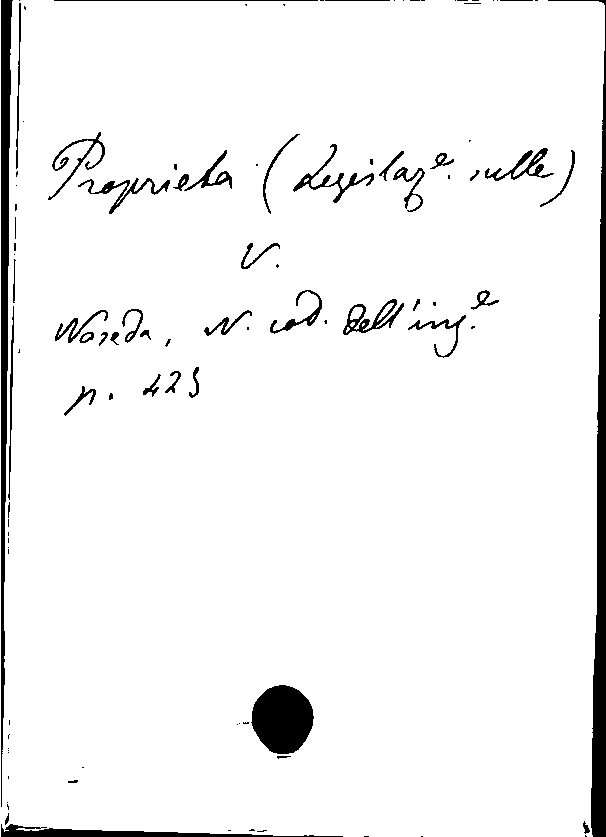 Proprietà (Legislazᵉ. sulle)
V.
Noseda, N. cod. dell'ingᵉ.
p. 423